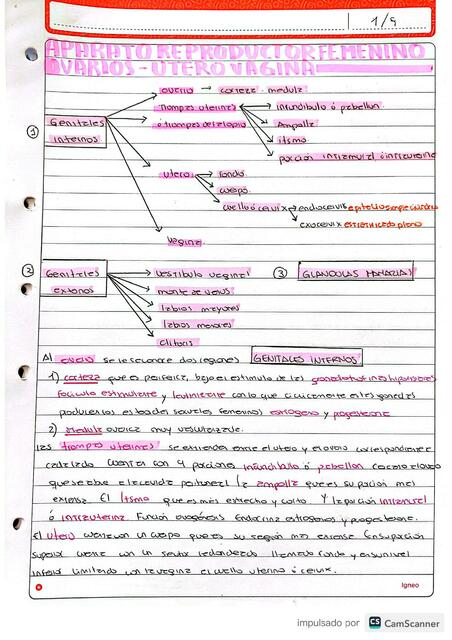 1/9
APARATO REPRODUCTOR FEMENINO
OVARIOS - UTERO VAGINA
ovario → corteza - medula
Trompas uterinas
infundibulo ó pabellon
Ampolla
itsmo
porción intramural ó intrauterina
ó trompas de falopio
① Genitales internos
utero
fondo
cuerpo
cuello ó cervix
endocervix epitelio simple cilindrico
exocervix estratificado plano
Vagina
② Genitales externos
vestibulo vaginal
monte de venus
labios mayores
labios menores
Clitoris
③ GLANDULAS MAMARIAS
Al ovario se le reconoce dos regiones
GENITALES INTERNOS
1) corteza que es periferica, bajo el estimulo de las gonadotrofinas hipofisiarias
foliculo estimulante y luteinizante con lo que ciclicamente estas gonadas
producen los esteroides sexuales femeninos estrogeno y progesterona
2) Medula ovarica muy vascularizada.
Las trompas uterinas se extienden entre el utero y el ovario correspondiente
cada lado cuenta con 4 porciones infundibulo ó pabellon cercano al ovario
que se abre a la cavidad peritoneal la ampolla que es su porción mas
extensa El Itsmo que es mas estrecho y corto Y la porción intramural
ó intrauterina. Función ovogénesis Endocrina estrogenos y progesterona.
El utero cuenta con un cuerpo que es su región mas extensa En su porción
superior cuenta con un sector redondeado llamado fondo y en su nivel
inferior limitando con la vagina el cuello uterino ó cervix.
Igneo
impulsado por CS CamScanner